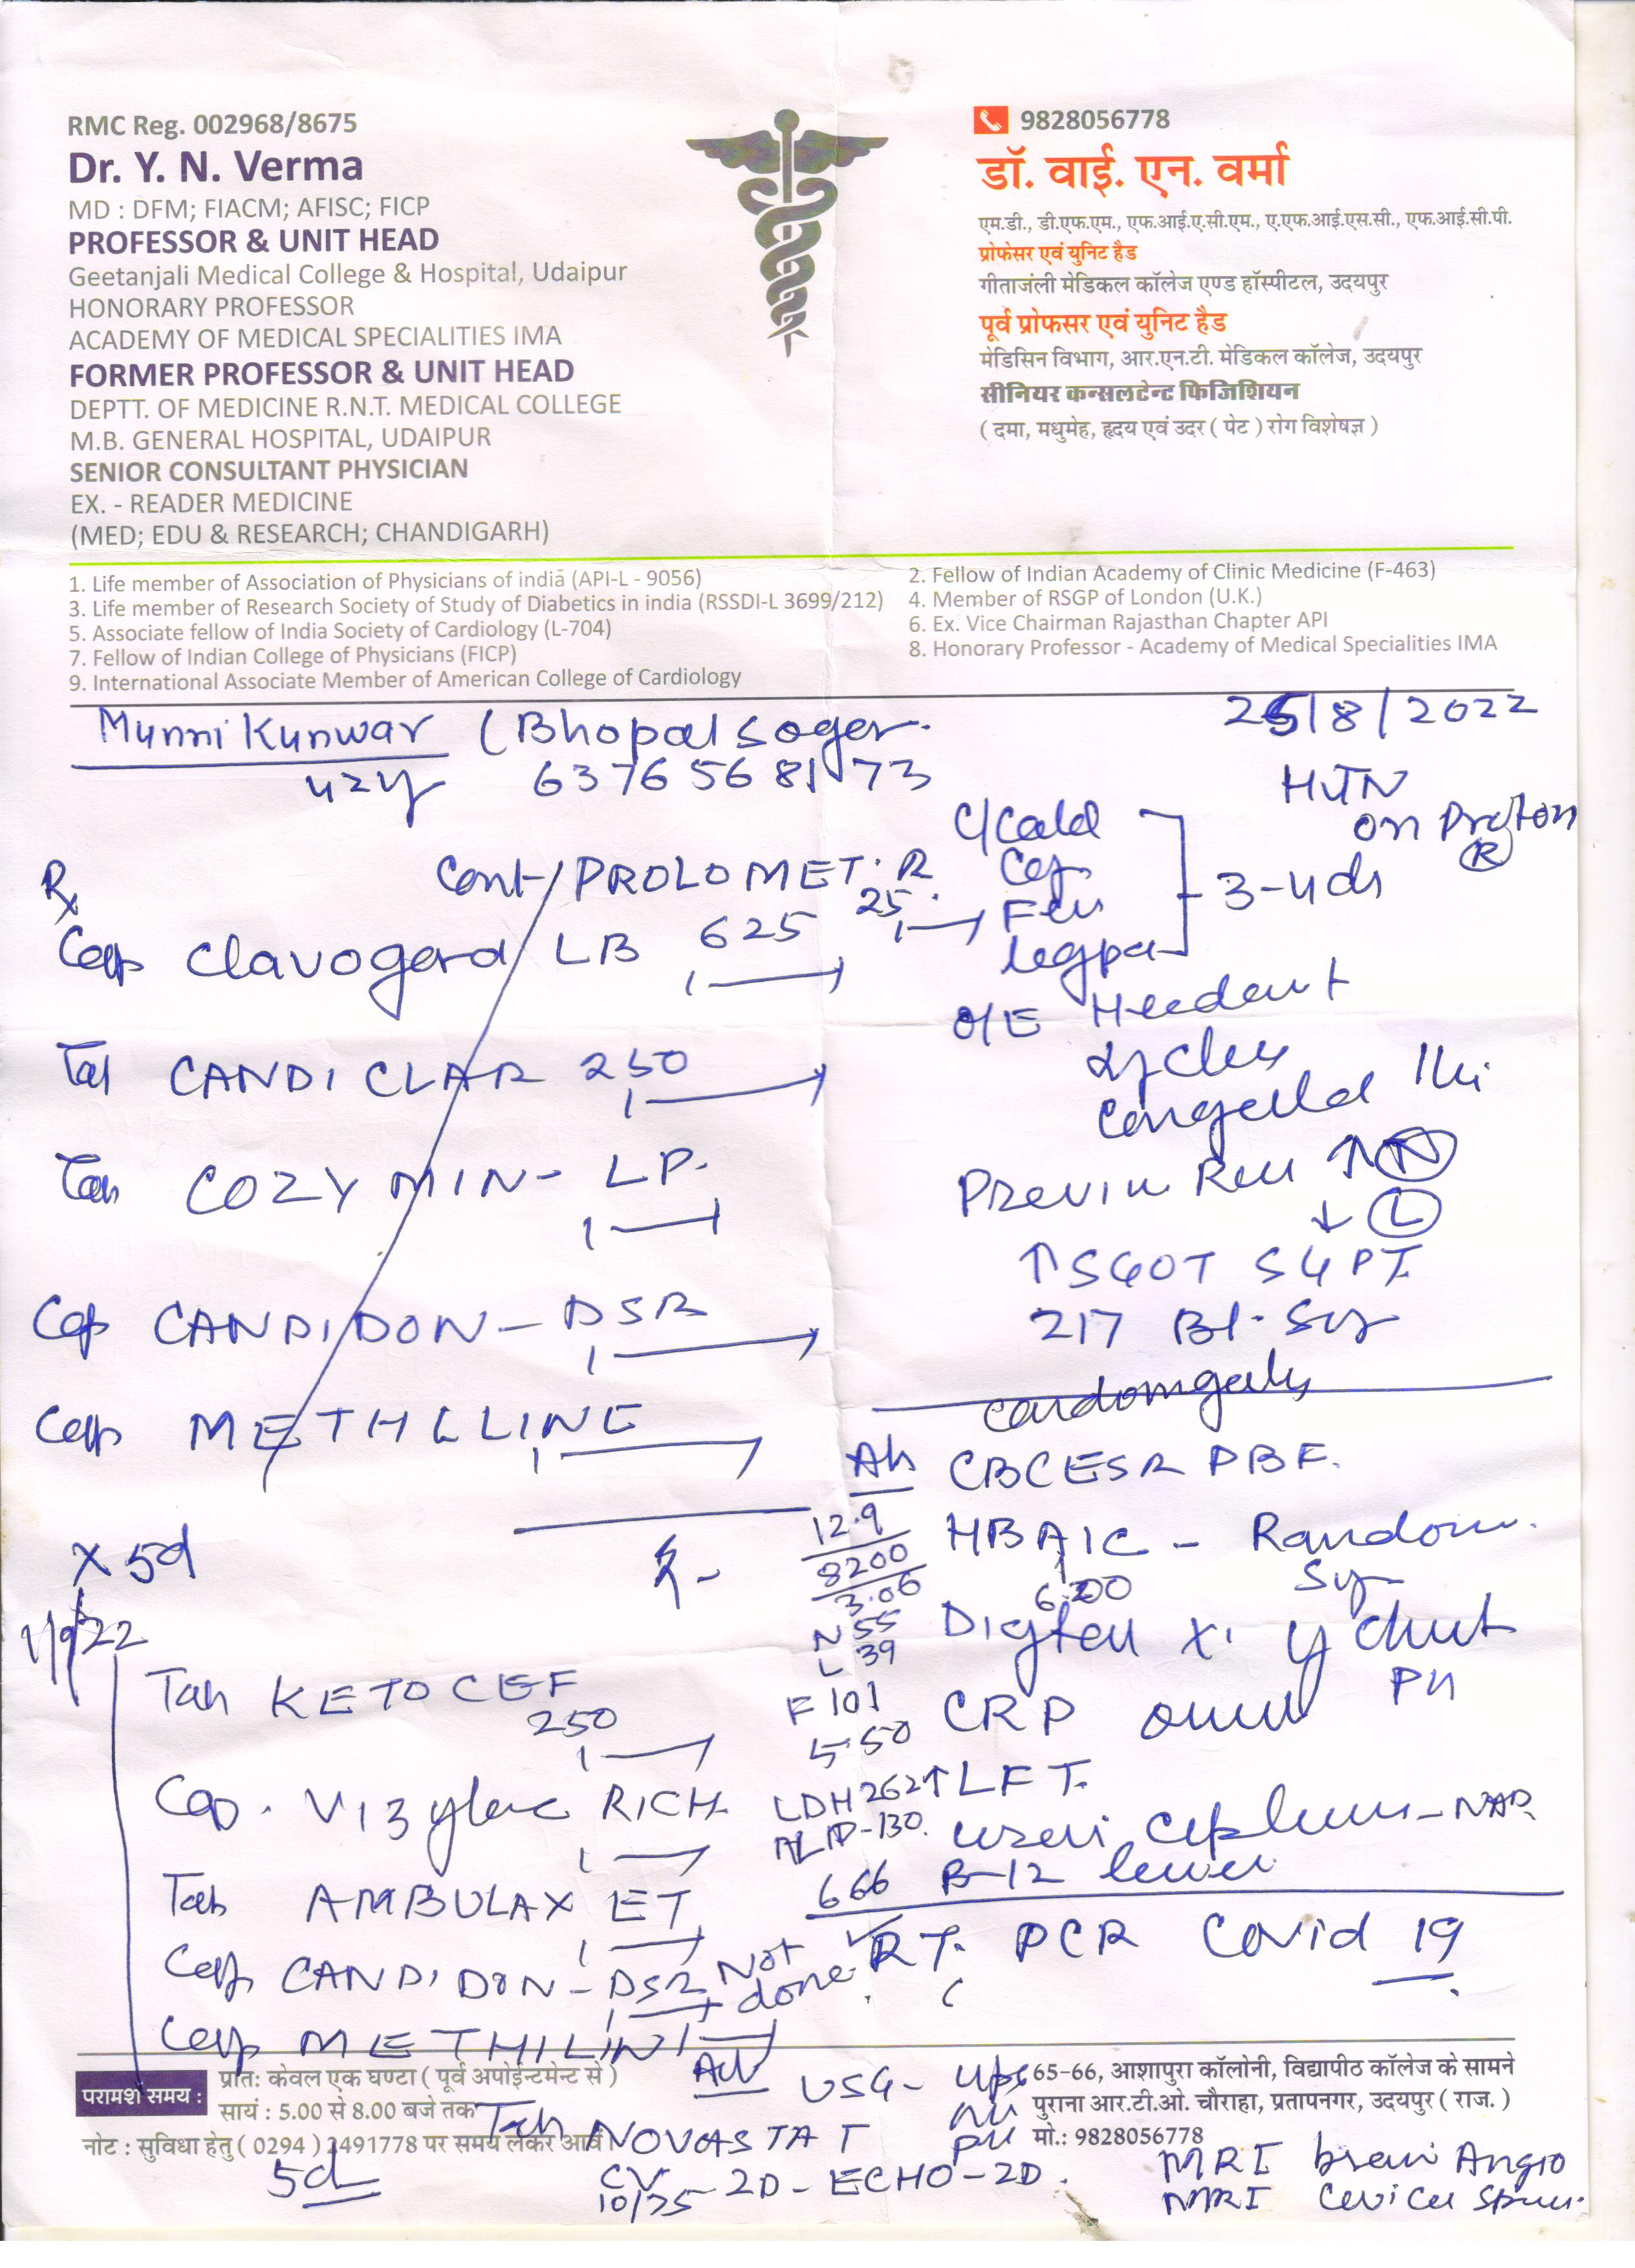 RMC Reg. 002968/8675
Dr. Y. N. Verma
MD : DFM; FIACM; AFISC; FICP
PROFESSOR & UNIT HEAD
Geetanjali Medical College & Hospital, Udaipur
HONORARY PROFESSOR
ACADEMY OF MEDICAL SPECIALITIES IMA
FORMER PROFESSOR & UNIT HEAD
DEPTT. OF MEDICINE R.N.T. MEDICAL COLLEGE
M.B. GENERAL HOSPITAL, UDAIPUR
SENIOR CONSULTANT PHYSICIAN
EX. - READER MEDICINE
(MED; EDU & RESEARCH; CHANDIGARH)
9828056778
डॉ. वाई. एन. वर्मा
एम.डी., डी.एफ.एम., एफ.आई.ए.सी.एम., ए.एफ.आई.एस.सी., एफ.आई.सी.पी.
प्रोफेसर एवं युनिट हैड
गीताजंली मेडिकल कॉलेज एण्ड हॉस्पीटल, उदयपुर
पूर्व प्रोफसर एवं युनिट हैड
मेडिसिन विभाग, आर.एन.टी. मेडिकल कॉलेज, उदयपुर
सीनियर कन्सलटेन्ट फिजिशियन
( दमा, मधुमेह, हृदय एवं उदर ( पेट ) रोग विशेषज्ञ )
1. Life member of Association of Physicians of india (API-L - 9056)
2. Fellow of Indian Academy of Clinic Medicine (F-463)
3. Life member of Research Society of Study of Diabetics in india (RSSDI-L 3699/212)
4. Member of RSGP of London (U.K.)
5. Associate fellow of India Society of Cardiology (L-704)
6. Ex. Vice Chairman Rajasthan Chapter API
7. Fellow of Indian College of Physicians (FICP)
8. Honorary Professor - Academy of Medical Specialities IMA
9. International Associate Member of American College of Cardiology
Munni Kunwar (Bhopal sager.
25/8/2022
42y 6376568173
HTN
on
Rx
Cont/PROLOMET. R 25
Cap Clavogard LB 625
Tab CANDICLAR 250
Tab COZYMIN- LP.
Cap CANDIDON - DSR
Cap METHLLINE
x 5d
C/Cold
3-4ds
O/E
↑ SGOT SGPT
217 Bl. Sug
Adv
CBC ESR PBF.
12.9
8200
3.06
N 55
L 39
F 101
5.50
LDH 262↑
ALP-130.
HBA1C - Random. Sug
6.20
CRP
LFT.
666 B-12 level
RT. PCR Covid 19
Not done
1/9/22
Tab KETOCEF 250
Cap. Vizylac RICH
Tab AMBULAX ET
Cap CANDIDON - DSR
Cap METHILIN
Adv
Tab NOVASTAT CV 10/75
5d
USG-
2D - ECHO - 2D.
MRI brain Angio
MRI
परामर्श समय :
प्रातः केवल एक घण्टा ( पूर्व अपोईन्टमेन्ट से )
सायं : 5.00 से 8.00 बजे तक
नोट : सुविधा हेतु ( 0294 ) 2491778 पर समय लेकर आवें।
65-66, आशापुरा कॉलोनी, विद्यापीठ कॉलेज के सामने
पुराना आर.टी.ओ. चौराहा, प्रतापनगर, उदयपुर ( राज. )
मो.: 9828056778